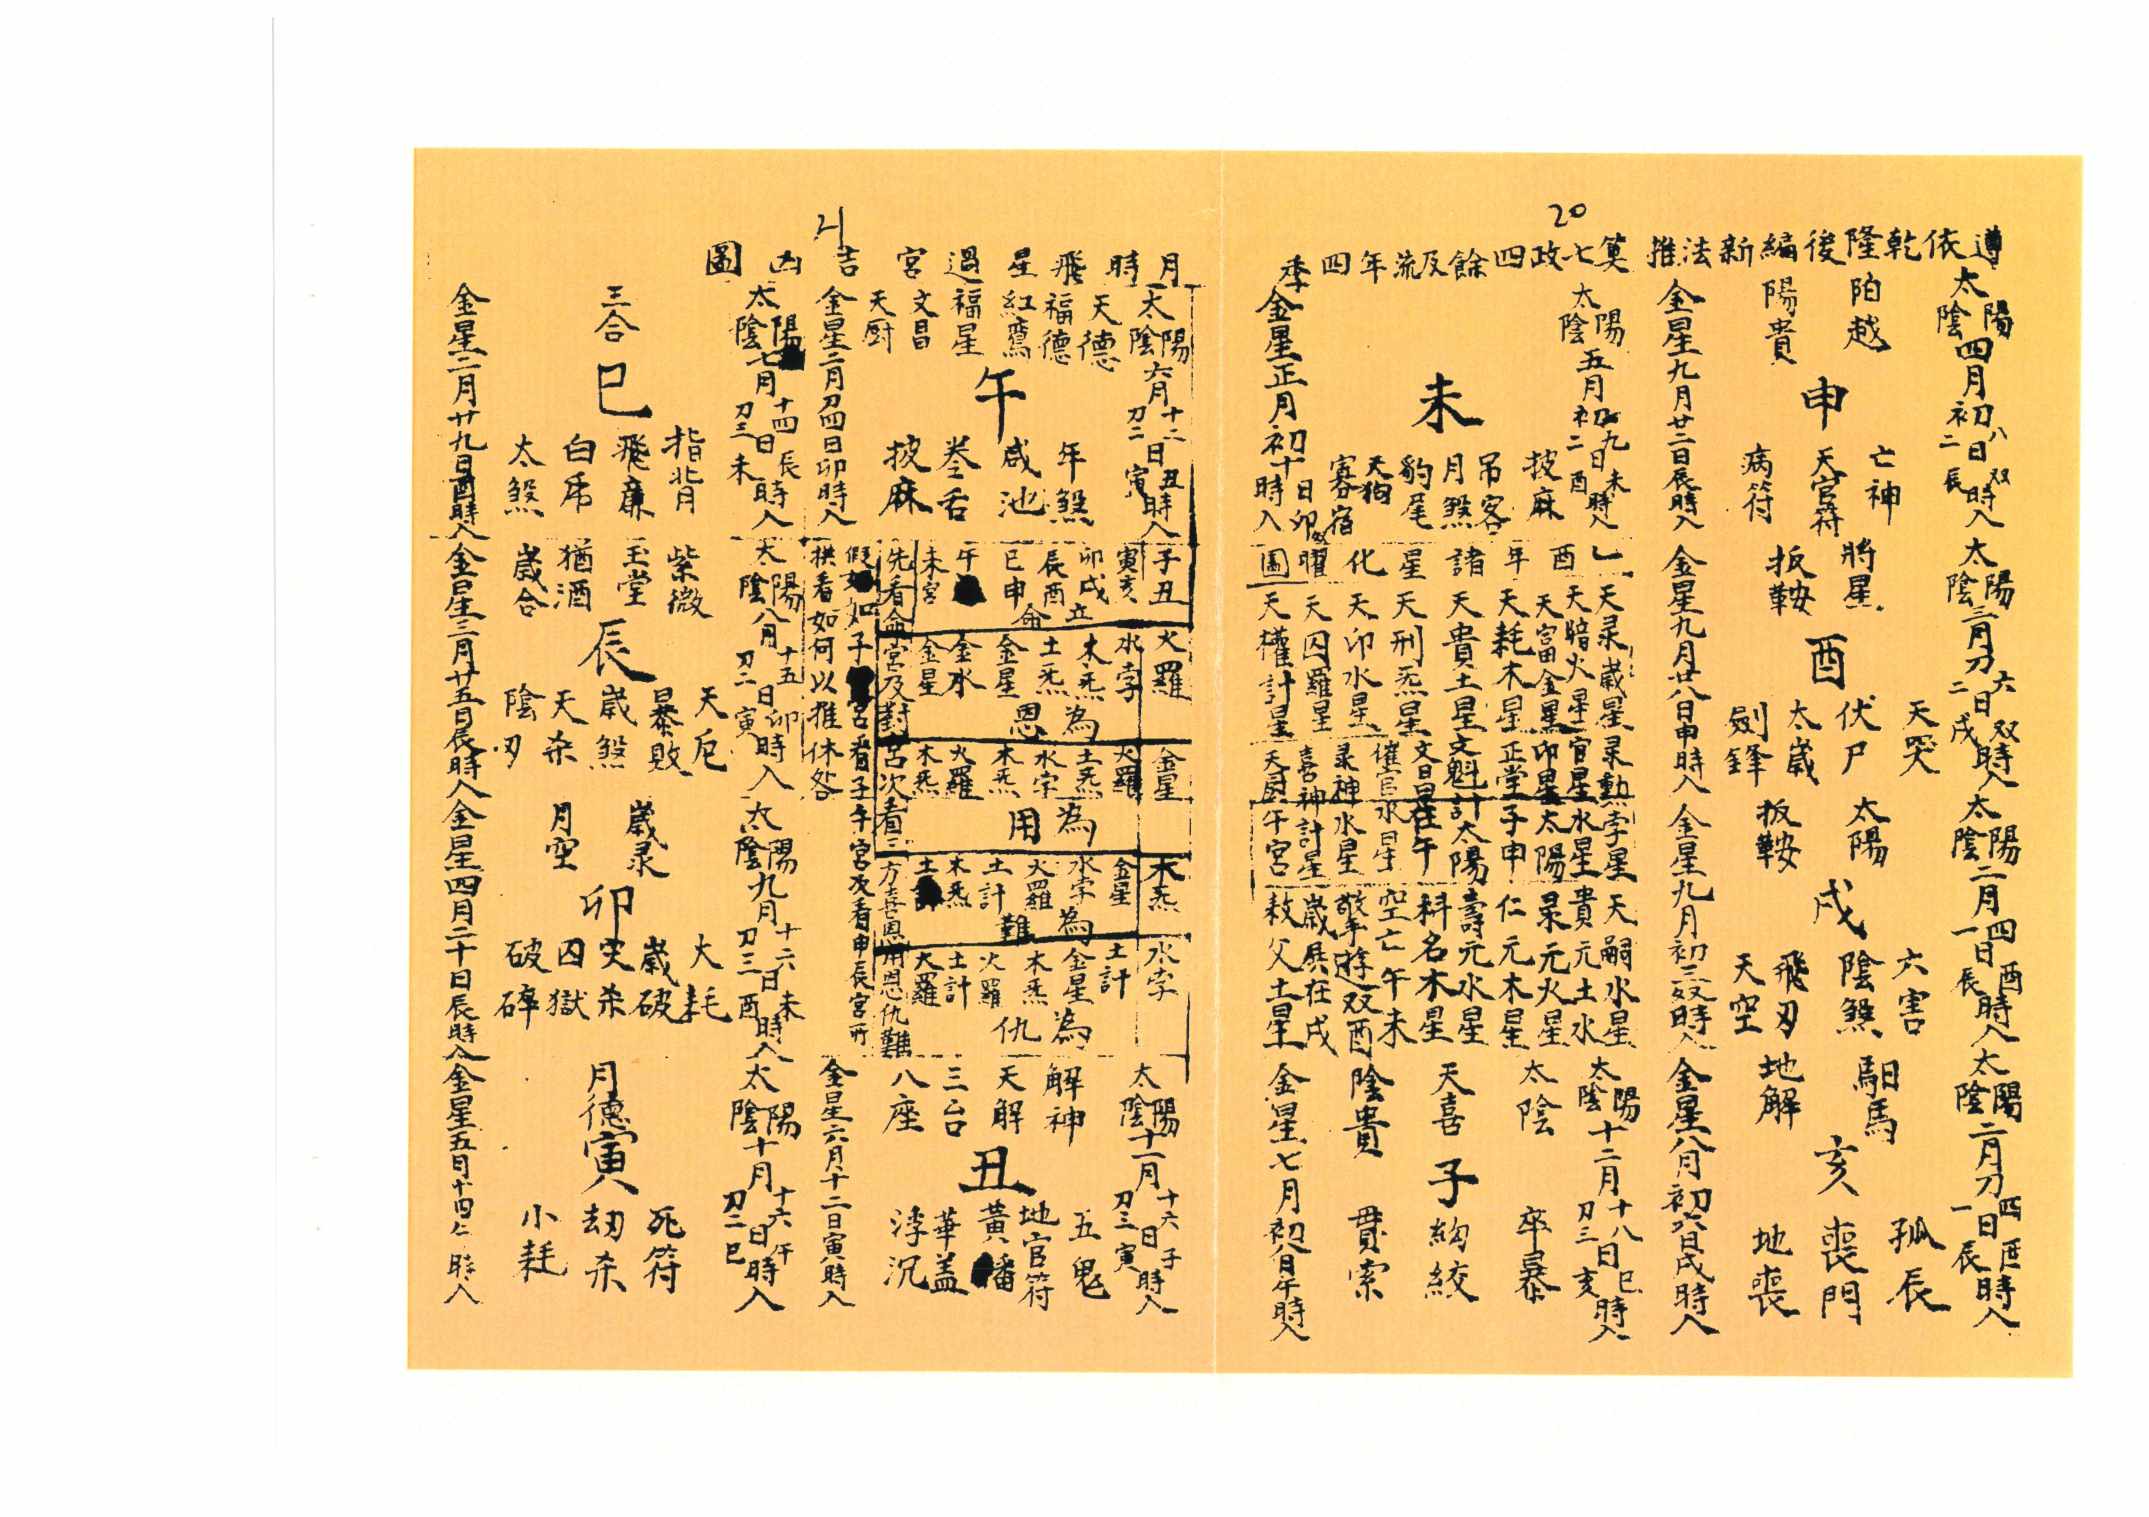 20
遵依乾隆後編新法推
算七政四餘及流年四季
太陽
太陰
四月初
八日双時入
二辰
陌越
陽貴
申
亡神
天官符
病符
金星九月廿二日辰時入
太陽
太陰
三月初
六日双時入
二戌
將星
扳鞍
酉
天哭
伏尸
太歲
劍鋒
金星九月廿八日申時入
太陽
太陰
二月
四日酉時入
一辰
太陽
扳鞍
戌
六害
陰煞
飛刃
天空
金星九月初三亥時入
太陽
太陰
二月初
四日酉時入
一辰
馹馬
地解
亥
孤辰
喪門
地喪
金星八月初六日戌時入
太陽
太陰
五月
初九日未時入
初二酉
未
披麻
吊客
月煞
豹尾
天狗
寡宿
金星正月初十日卯時入
乙酉年諸星化曜圖
天彔歲星彔勲孛星
天暗火星官星水星
天富金星卯星太陽
天耗木星正堂子申
天貴土星文魁計太陽
天刑炁星文昌在午
天印水星催官水星
天囚羅星彔神水星
天權計星喜神計星
天厨午宮
天嗣水星
貴元土水
彔元火星
仁元木星
壽元水星
科名木星
空亡午未
歲展在戌
赦父土星
太陽
太陰
十二月
十八日巳時入
初三亥
太陰
天喜
陰貴
子
卒暴
絞
貫索
金星七月
午時入
21
月時飛星過宮吉凶圖
太陽
太陰
六月
十二日丑時入
初二寅
天德
福德
紅鸞
福星
文昌
天厨
午
年煞
咸池
卷舌
披麻
金星二月初四日卯時入
子丑
寅亥
卯戌立
辰酉
巳申命
午
未宮
火羅
水孛
木炁為
土炁
金星恩
金水
金星
金星
火羅
土炁為
水孛
木炁用
火羅
木炁
木炁
金星
水孛為
火羅
土計難
木炁
水孛
土計
金星為
木炁
火羅仇
土計
火羅
先看命宮及對宮次看三
方喜恩用恩仇難
假如子宮看子午宮次看申辰宮所
拱看如何以推休咎
太陽
太陰
十一月
十六日子時入
初三寅
解神
天解
三台
八座
丑
五鬼
地官符
黃旛
華蓋
浮沉
金星六月十二日寅時入
太陽
太陰
七月
十四日辰時入
初三未
三合
巳
指背
飛廉
白虎
太煞
金星二月廿九日酉時入
太陽
太陰
八月
十五日卯時入
初二寅
紫微
玉堂
猶酒
歲合
辰
天厄
暴敗
歲煞
天杀
陰刃
金星三月廿五日辰時入
太陽
太陰
九月
十六日未時入
初三酉
歲彔
月空
卯
大耗
歲破
灾杀
囚獄
破碎
金星四月二十日辰時入
太陽
太陰
十月
十六日午時入
初二巳
月德
寅
死符
劫杀
小耗
金星五月十四亡時入